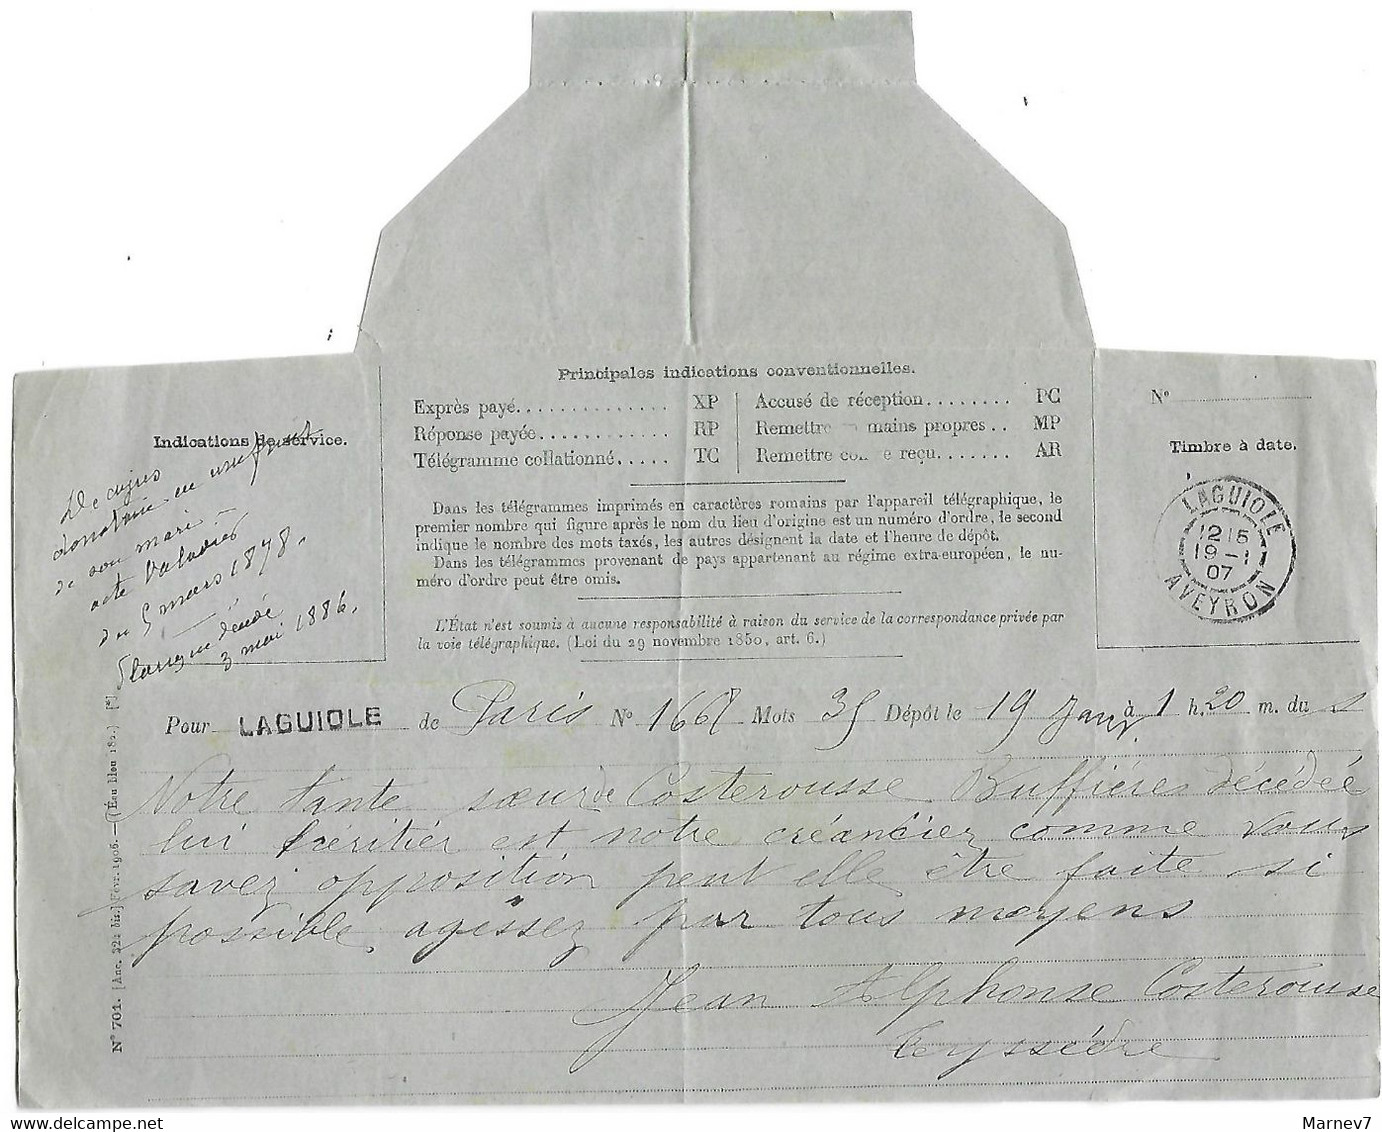 Principales indications conventionnelles.
Exprès payé.............. XP
Réponse payée............ RP
Télégramme collationné..... TC
Accusé de réception........ PC
Remettre mains propres.. MP
Remettre reçu....... AR
Dans les télégrammes imprimés en caractères romains par l'appareil télégraphique, le
premier nombre qui figure après le nom du lieu d'origine est un numéro d'ordre, le second
indique le nombre des mots taxés, les autres désignent la date et l'heure de dépôt.
Dans les télégrammes provenant de pays appartenant au régime extra-européen, le nu-
méro d'ordre peut être omis.
L'État n'est soumis à aucune responsabilité à raison du service de la correspondance privée par
la voie télégraphique. (Loi du 29 novembre 1850, art. 6.)
Indications de service.
De cujus
donataire en usufruit
de son mari —
acte Valadier
du 5 mars 1878.
décédé
3 mai 1886.
N°
Timbre à date.
LAGUIOLE
12 15
19 - 1
07
AVEYRON
Pour LAGUIOLE de Paris N° 1667 Mots 35 Dépôt le 19 Janv. à 1 h. 20 m. du s
Notre tante sœur de Costerousse Buffières décédée
lui héritier est notre créancier comme vous
savez opposition peut elle être faite si
possible agissez par tous moyens
Jean Alphonse Costerousse
Teyssèdre
N° 701. [Anc. 322 bis.] Févr. 1906. — (Eau bleu 182.) [*]
Marnev7